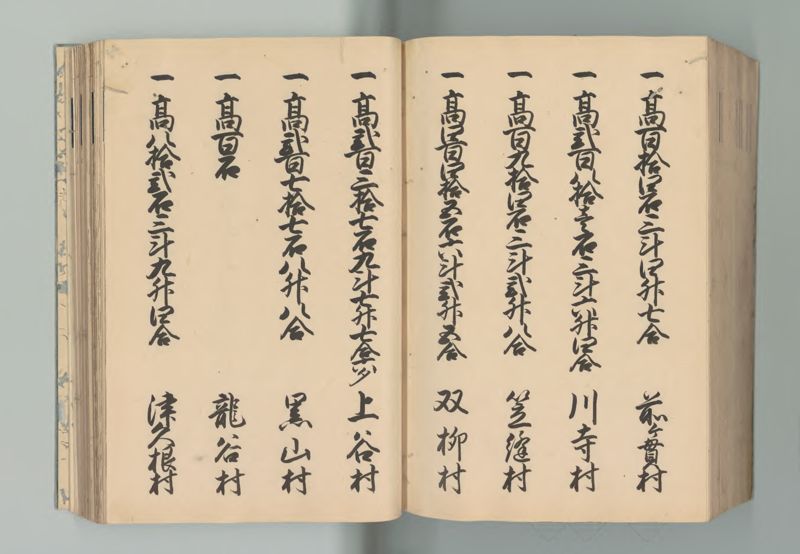 一 高百拾四石三斗四升七合 前ヶ貫村
一 高弐百八拾壱石三斗六升四合 川寺村
一 高百九拾四石三斗弐升八合 笠縫村
一 高四百四拾五石六斗弐升五合 双柳村
一 高弐百三拾七石九斗七升七合余 上谷村
一 高弐百七拾七石八升八合 黒山村
一 高百石 龍谷村
一 高八拾弐石三斗九升四合 津久根村